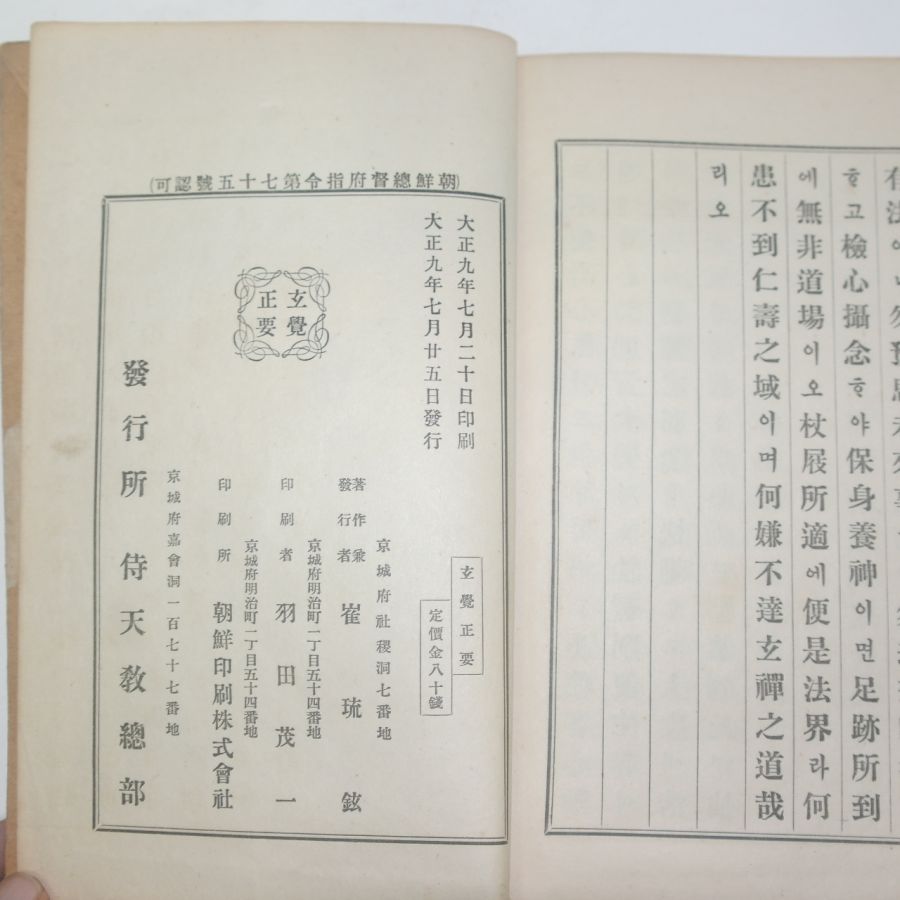 ᄒᆞ고檢心攝念ᄒᆞ야保身養神이면足跡所到
에無非道場이오杖屐所適에便是法界라何
患不到仁壽之域이며何嫌不達玄禪之道哉
리오
(朝鮮總督府指令第七十五號認可)
大正九年七月二十日印刷
大正九年七月廿五日發行
玄覺
正要
玄覺正要
定價金八十錢
京城府社稷洞七番地
著作兼
發行者 崔琉鉉
京城府明治町一丁目五十四番地
印刷者 羽田茂一
京城府明治町一丁目五十四番地
印刷所 朝鮮印刷株式會社
京城府嘉會洞一百七十七番地
發行所 侍天敎總部